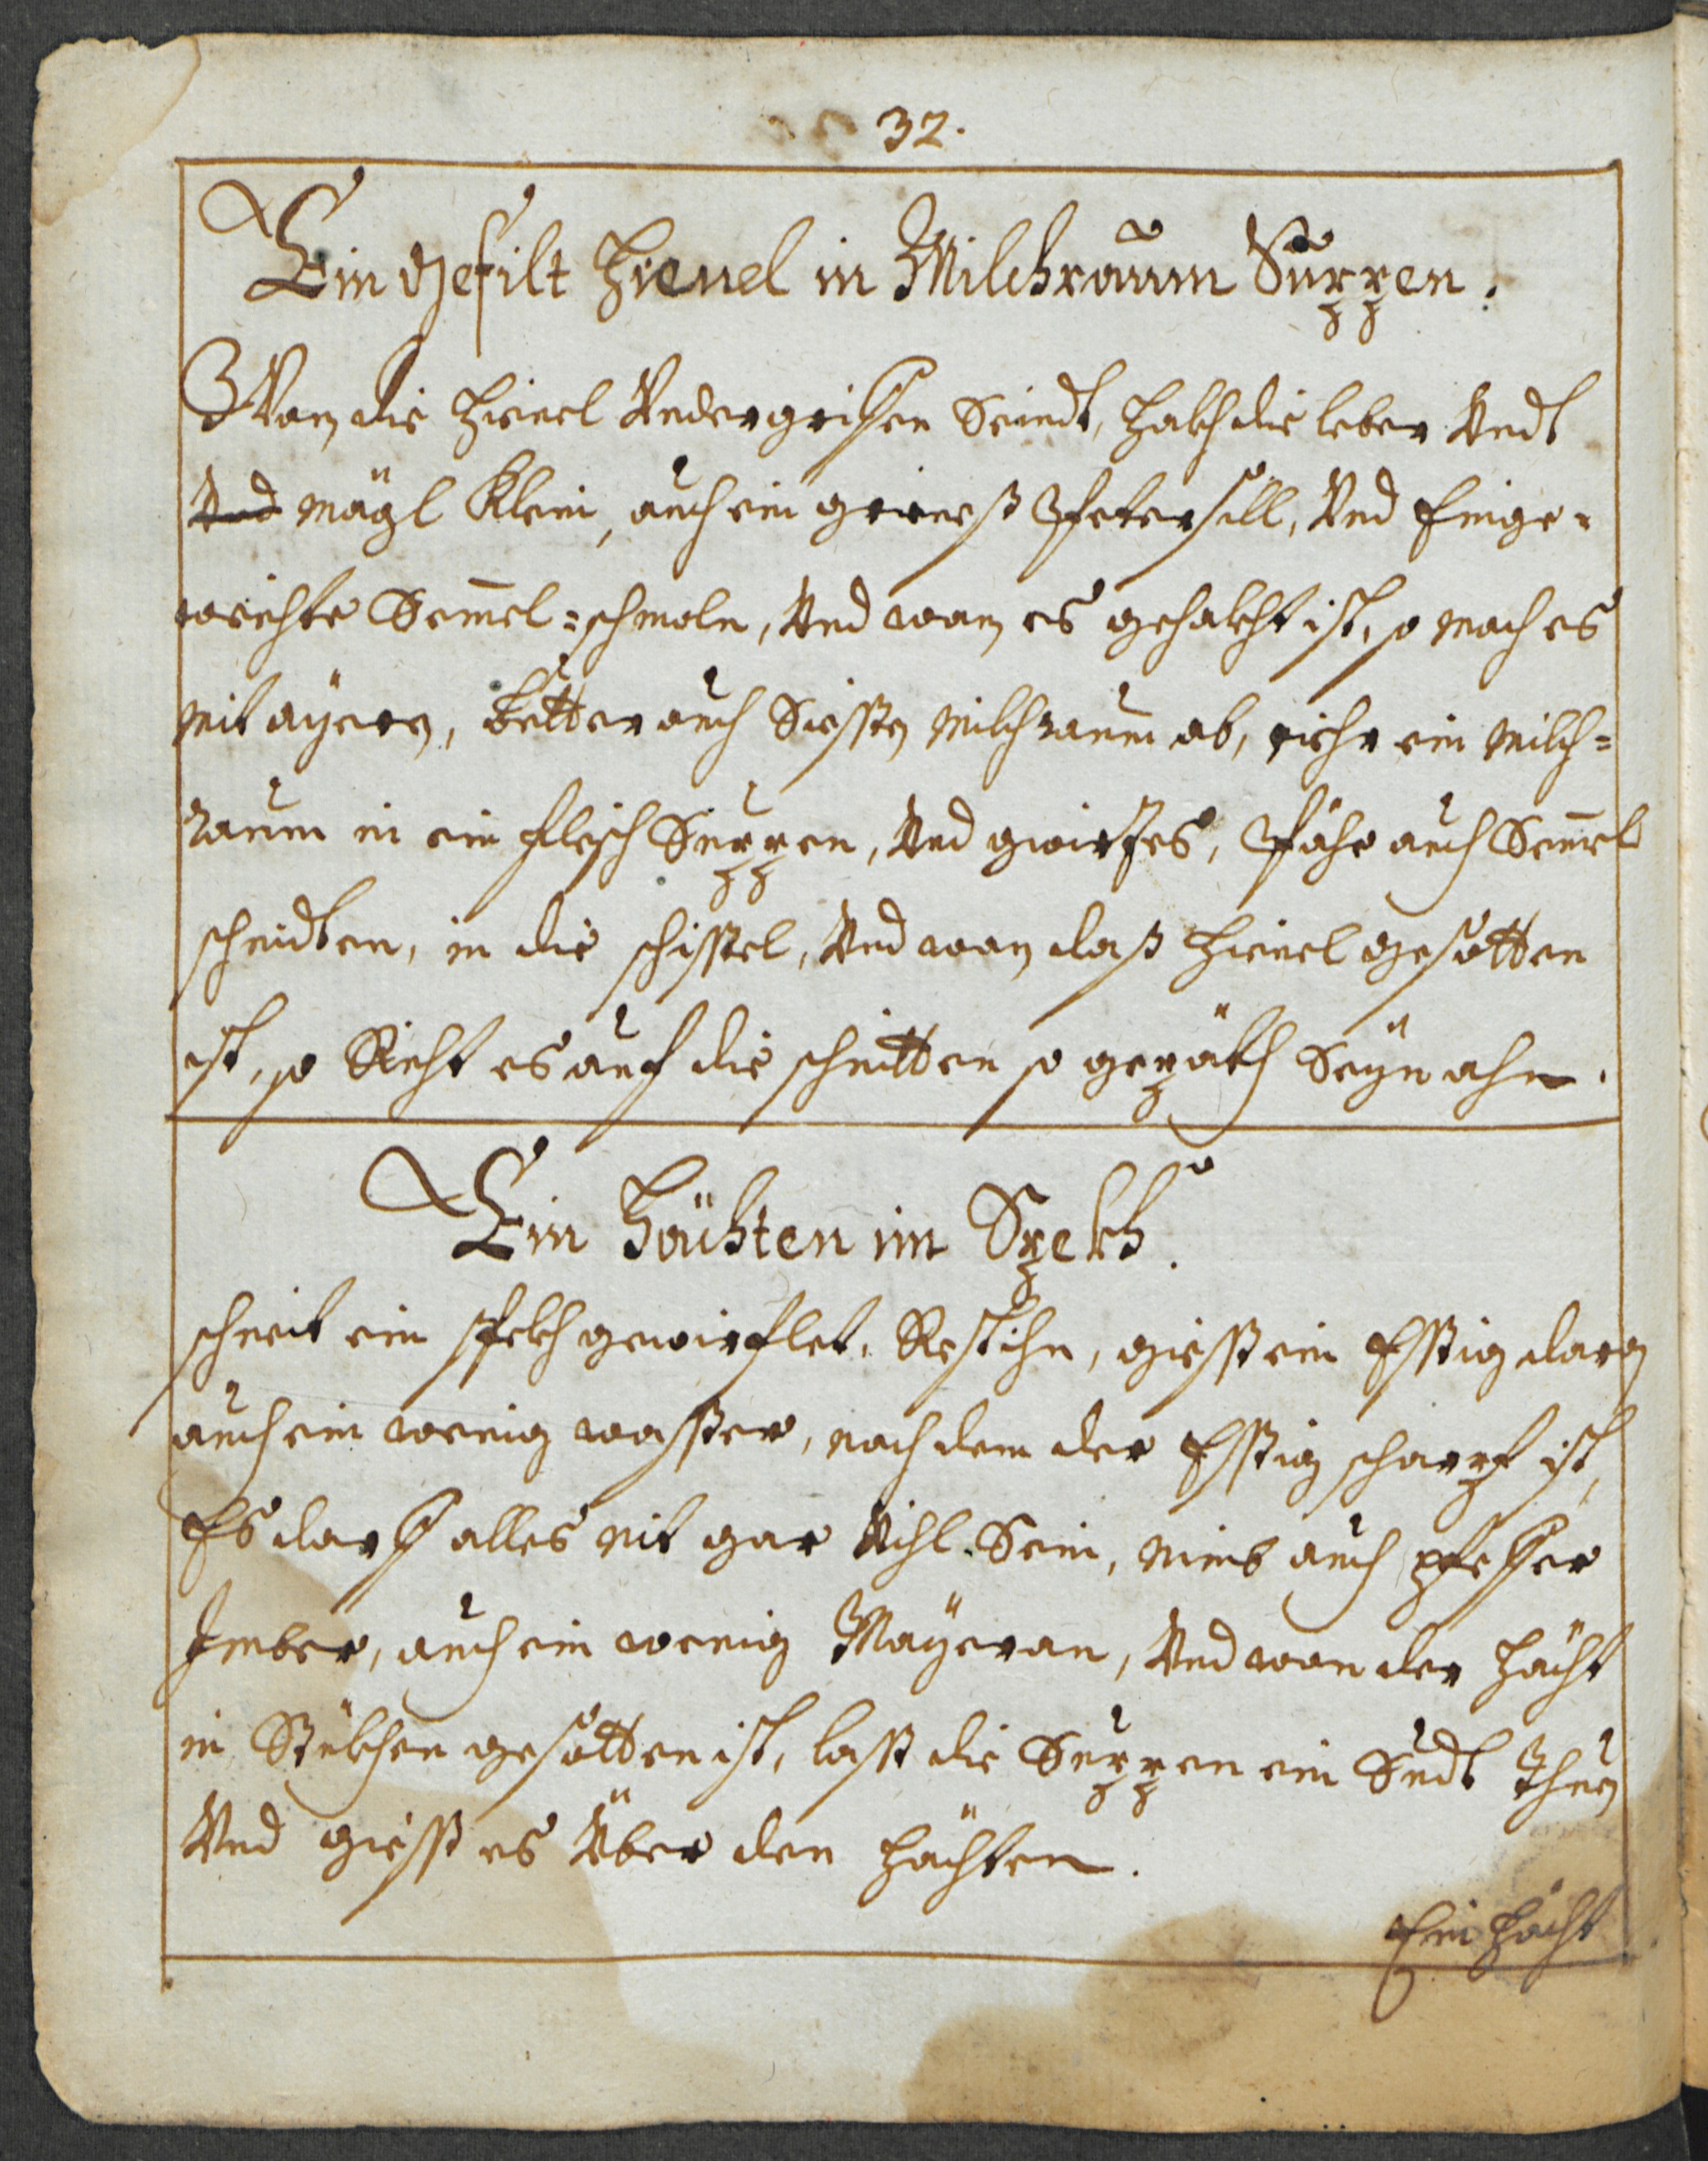 32.
Ein gefilt Hienel in Milchraum Suppen.
Wan die Hienel Undergriffen Seindt, Hakh die leber Undt
Und mägl Klein, auch ein grienes Petersill, Und Einge=
weichte Sem̄el=schmoln, Und wan es gehakht ist, so mach es
mit ayern, Butter auch Siessen Milchraum ab, riehr ein Milch=
raum in ein fleisch Suppen, Und gwirtz es, Päh auch Sem̄el
schnidten, in die schissel, Und wan daß Hienel gesotten
ist, so Richt es auf die schnitten so gepäth Seyn ahn.
Ein Hächten im Spekh.
schneit ein spekh gewirflet, Rest ihn, giess ein Essig daran
auch ein wenig wasser, nach dem der Essig scharpf ist,
Es darff alles nit gar Vihl Sein, nimb auch pfeffer
Imber, auch ein wenig Mayeran, Und wan der Hächt
in Stükhen gesotten ist, lass die Suppen ein Sudt Thun
Und giess es Über den Hächten.
Ein Hächt